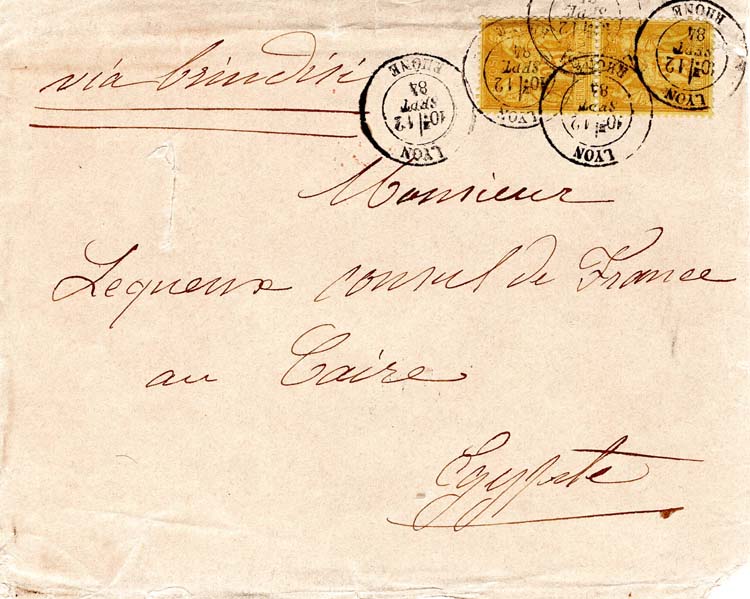 via brindisi
LYON
10E 12
SEPT
84
RHONE
LYON
10E 12
SEPT
84
RHONE
LYON
12
SEPT
84
RHONE
LYON
12
SEPT
84
RHONE
Monsieur
Lequeux consul de France
au Caire
Egypte